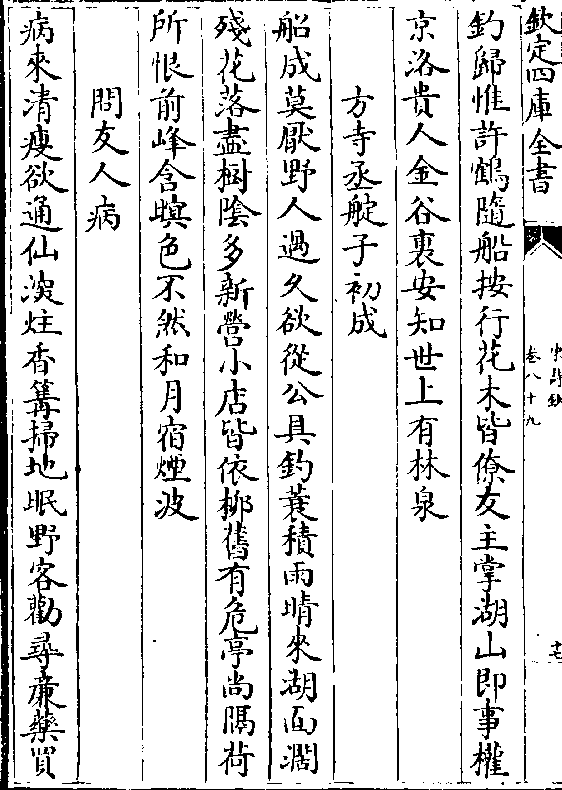 欽定四庫全書
宋詩鈔
卷八十九
十七
釣歸惟許鶴隨船按行花木皆僚友主掌湖山即事權
京洛貴人金谷裏安知世上有林泉
方寺丞艇子初成
船成莫厭野人過久欲從公具釣蓑積雨晴來湖面濶
殘花落盡樹陰多新營小店皆依栁舊有危亭尚隔荷
所恨前峰含暝色不然和月宿煙波
問友人病
病來清瘦欲通仙深炷香篝掃地眠野客勸尋亷藥買